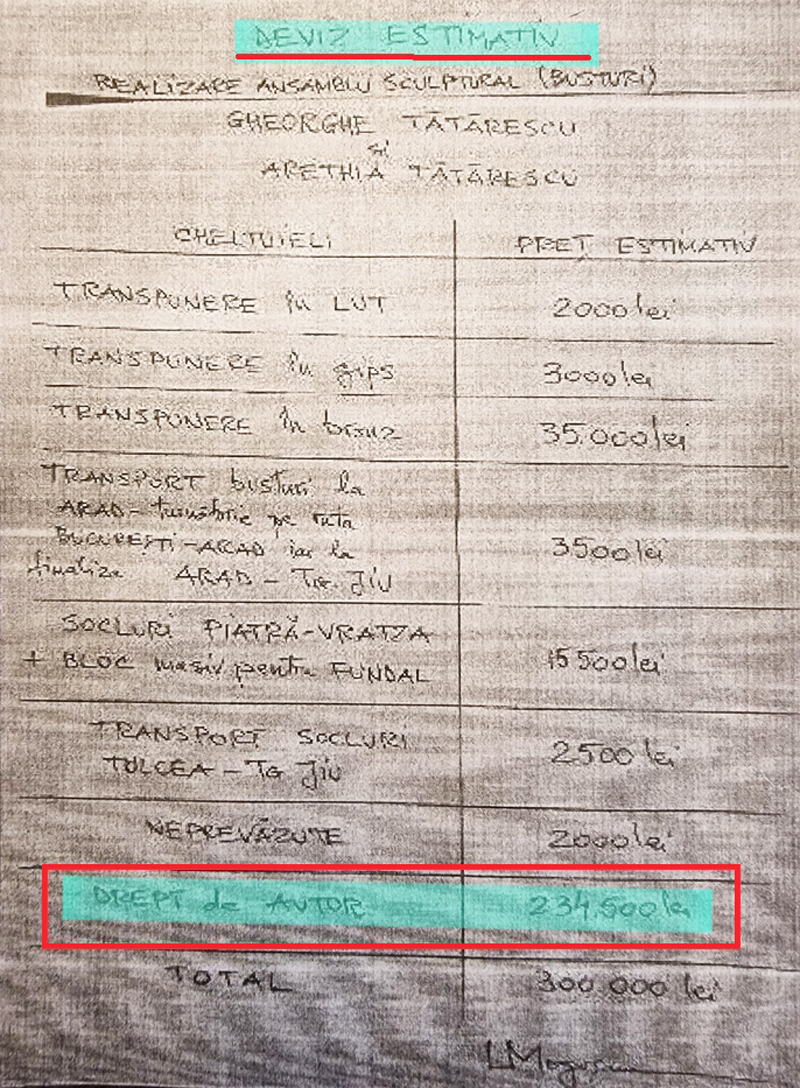 DEVIZ ESTIMATIV
REALIZARE ANSAMBLU SCULPTURAL (BUSTURI)
GHEORGHE TĂTĂRESCU
și
ARETHIA TĂTĂRESCU
CHELTUIELI PREȚ ESTIMATIV
TRANSPUNERE în LUT 2000 lei
TRANSPUNERE în gips 3000 lei
TRANSPUNERE în bronz 35.000 lei
TRANSPORT busturi la
ARAD - turnătorie pe ruta
BUCUREȘTI - ARAD iar la
finaliza ARAD - TG. JIU 3500 lei
SOCLURI PIATRĂ - VRATZA
+ BLOC masiv pentru FUNDAL 15 500 lei
TRANSPORT SOCLURI
TULCEA - TG JIU 2500 lei
NEPREVĂZUTE 2000 lei
DREPT de AUTOR 234.500 lei
TOTAL 300 000 lei